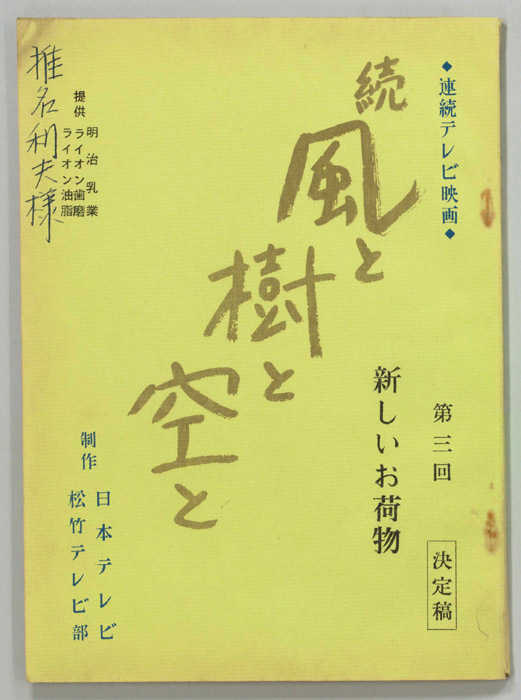 ◆連続テレビ映画◆
続
風と
樹と
空と
第三回
新しいお荷物
決定稿
提供
明治乳業
ライオン歯磨
ライオン油脂
椎名利夫様
制作
日本テレビ
松竹テレビ部